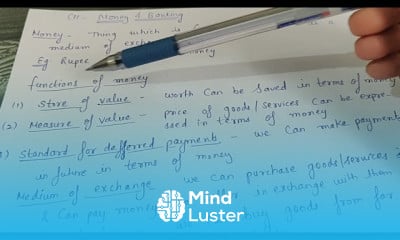 CH - Money & Banking
Money - Thing which is
medium of exchange money
Eg Rupee
functions of money
(1) Store of value - worth can be saved in terms of money
(2) Measure of value - price of goods/services can be expre-
ssed in terms of money
Standard for deffered payments - we can make payments
in future in terms of money
Medium of exchange we can purchase goods/services
in exchange with them
& can pay money
buy goods from far
Mind
Luster